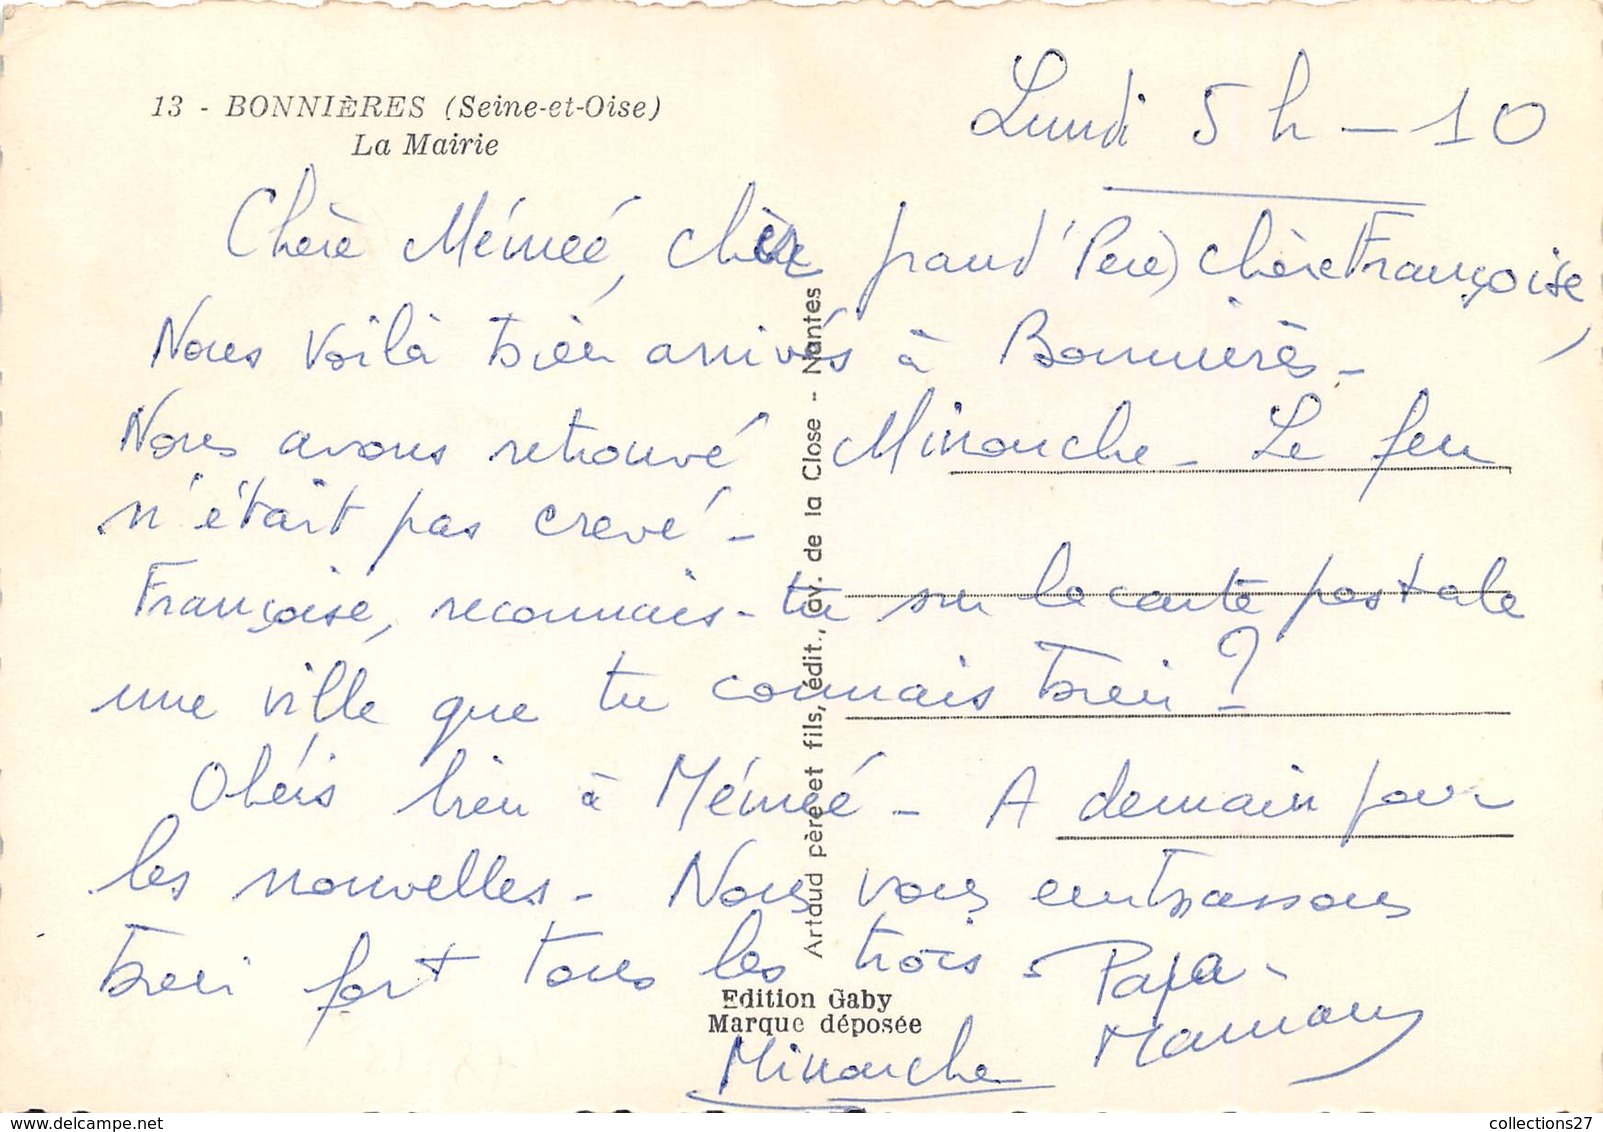 13 - BONNIÈRES (Seine-et-Oise)
La Mairie
Lundi 5 h - 10
Chère Mémée, chèr grand'Père, chère Françoise,
Nous voilà bien arrivés à Bonnières -
Nous avons retrouvé Minouche - Le feu
n'était pas crevé -
Françoise, reconnais-tu sur la carte postale
une ville que tu connais bien ?
Obéis bien à Mémée - A demain pour
les nouvelles - Nous vous embrassons
bien fort tous les trois - Papa -
Maman
Minouche
Artaud père et fils, édit., av. de la Close - Nantes
Edition Gaby
Marque déposée
collections27